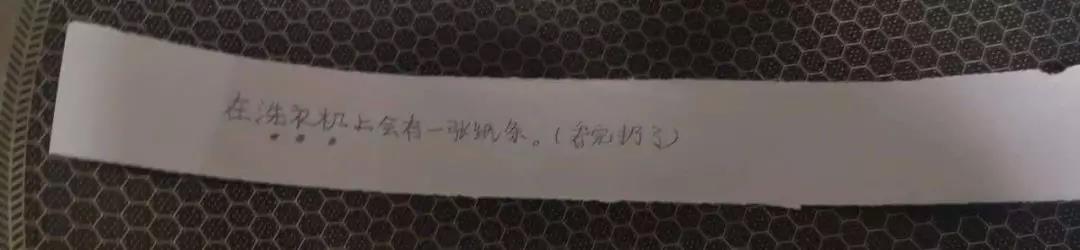 在洗衣机上会有一张纸条。(看完扔了)